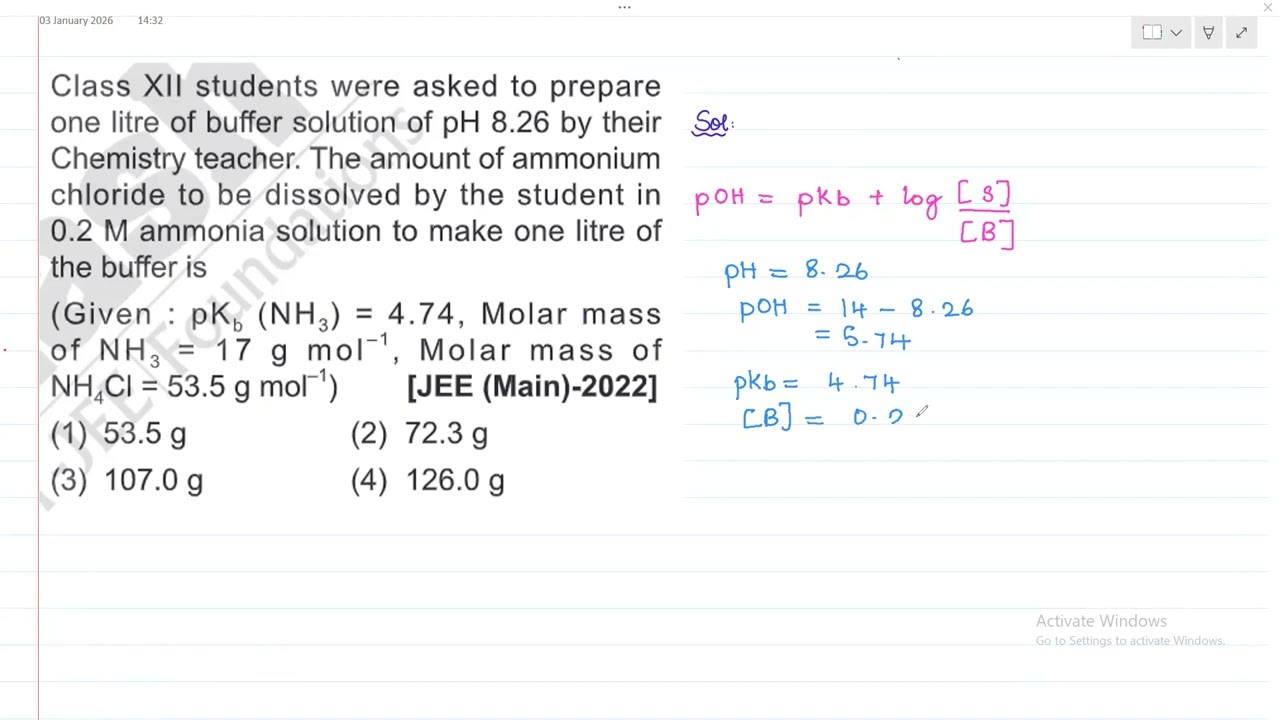 03 January 2026 14:32
Class XII students were asked to prepare
one litre of buffer solution of pH 8.26 by their
Chemistry teacher. The amount of ammonium
chloride to be dissolved by the student in
0.2 M ammonia solution to make one litre of
the buffer is
(Given : pK_b (NH₃) = 4.74, Molar mass
of NH₃ = 17 g mol⁻¹, Molar mass of
NH₄Cl = 53.5 g mol⁻¹) [JEE (Main)-2022]
(1) 53.5 g (2) 72.3 g
(3) 107.0 g (4) 126.0 g
Sol:
pOH = pKb + log [S]/[B]
pH = 8.26
pOH = 14 - 8.26
= 5.74
pKb = 4.74
[B] = 0.2
Activate Windows
Go to Settings to activate Windows.